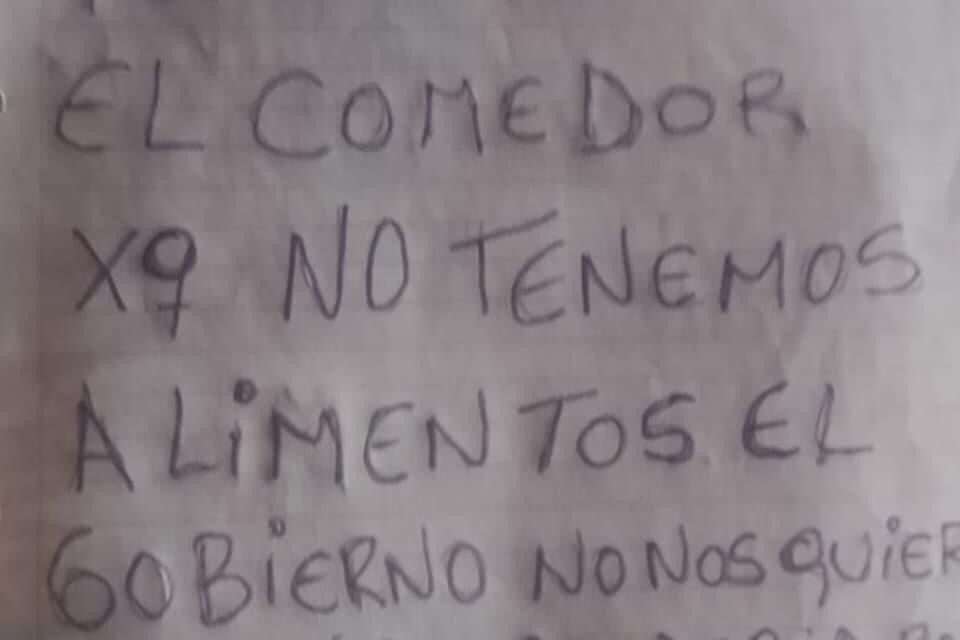 EL COMEDOR
Xq NO TENEMOS
ALiMENTOS EL
GOBiERNO NO NOS QUiER